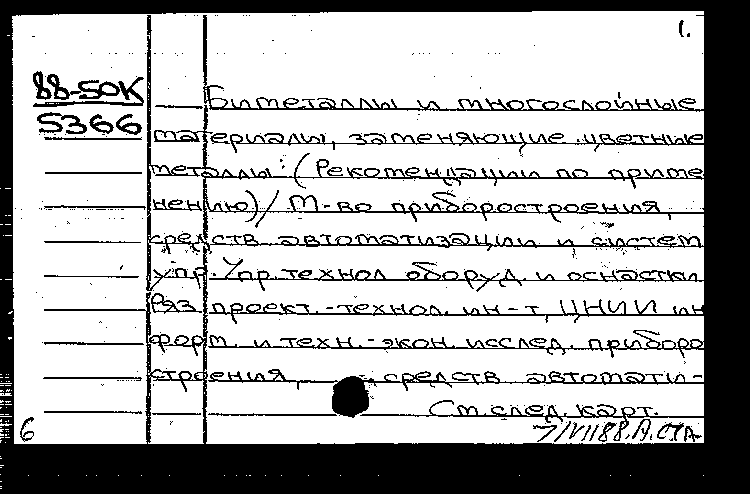 1.
88-50К
5366
Биметаллы и многослойные
материалы, заменяющие цветные
металлы: (Рекомендации по приме
нению) / М-во приборостроения,
средств автоматизации и систем
упр. Упр. технол. оборуд. и оснастки
Ряз. проект.-технол. ин-т, ЦНИИ ин
форм. и техн.-экон. исслед. приборо
строения, средств автомати-
См. след. карт.
6